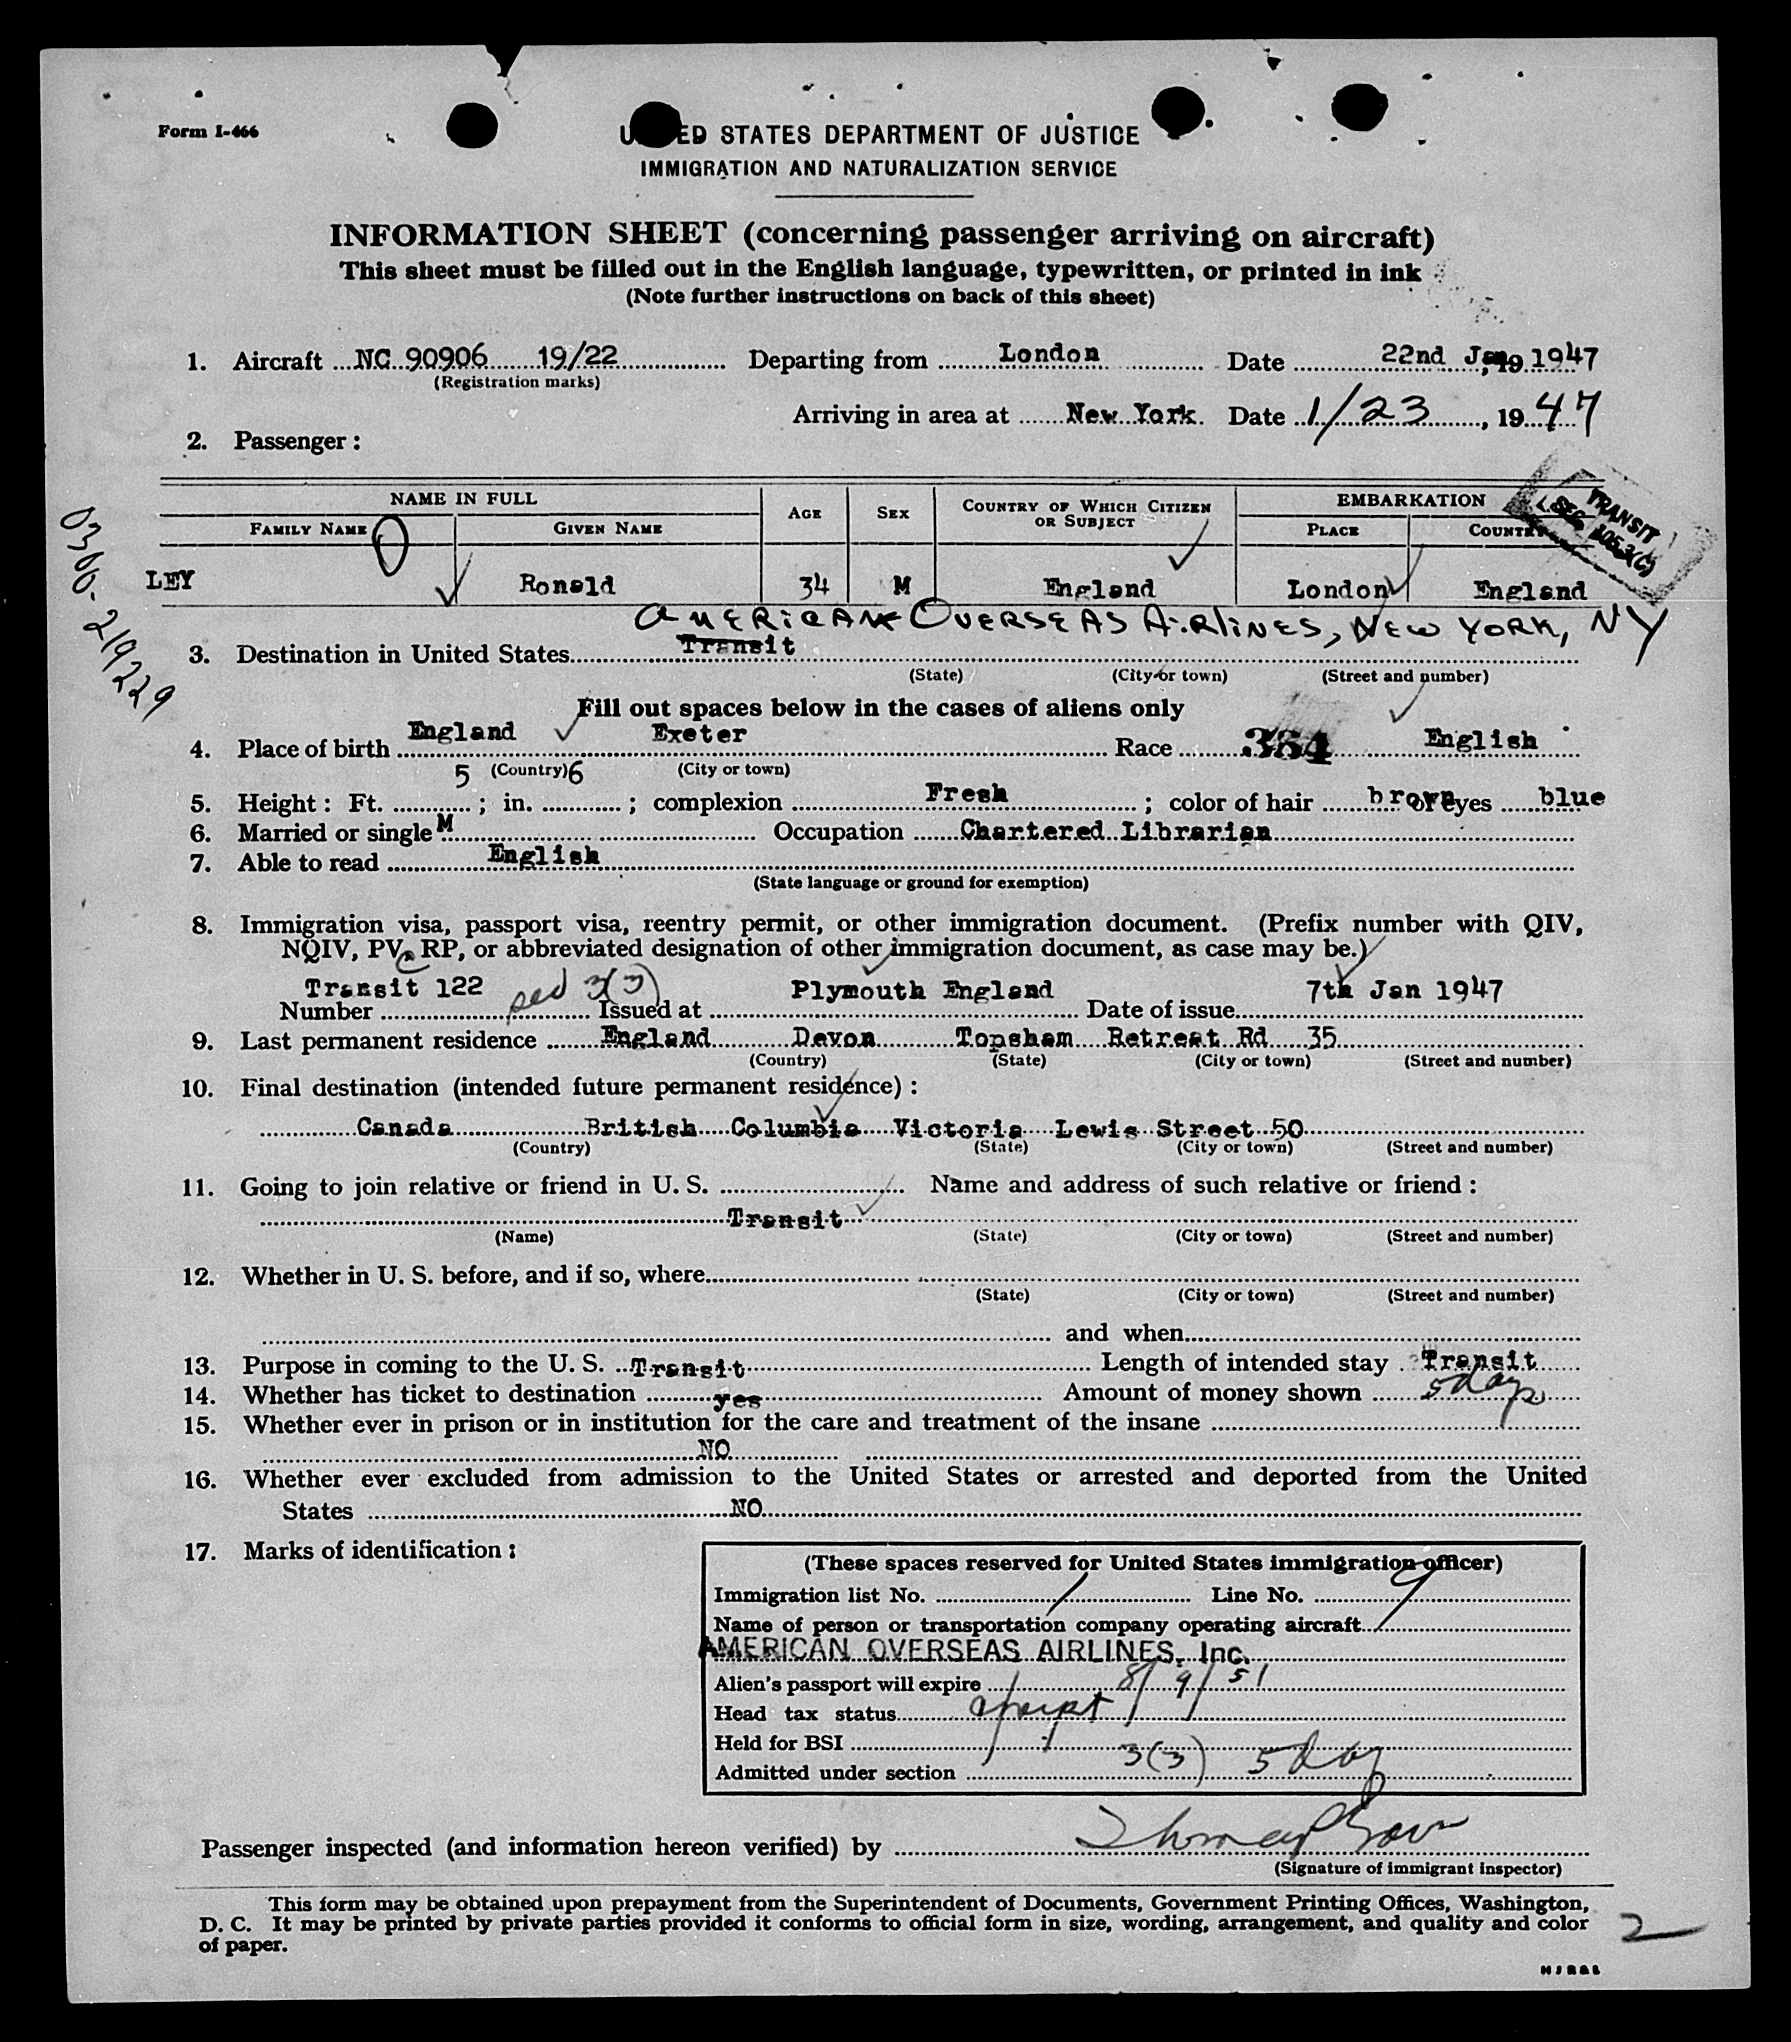 Form I-466
UNITED STATES DEPARTMENT OF JUSTICE
IMMIGRATION AND NATURALIZATION SERVICE
INFORMATION SHEET (concerning passenger arriving on aircraft)
This sheet must be filled out in the English language, typewritten, or printed in ink
(Note further instructions on back of this sheet)
1. Aircraft NC 90906 19/22 Departing from London Date 22nd Jan, 19 1947
(Registration marks)
Arriving in area at New York Date 1/23, 1947
2. Passenger:
NAME IN FULL AGE SEX COUNTRY OF WHICH CITIZEN OR SUBJECT EMBARKATION
FAMILY NAME GIVEN NAME PLACE COUNTRY
TRANSIT
SEC. 105.3(C)
0300-219229
LEY Ronald 34 M England London England
AMERICAN OVERSEAS AIRLINES, NEW YORK, NY
3. Destination in United States Transit
(State) (City or town) (Street and number)
Fill out spaces below in the cases of aliens only
4. Place of birth England Exeter Race 384 English
(Country) (City or town)
5. Height: Ft. 5; in. 6; complexion Fresh; color of hair brown of eyes blue
6. Married or single M Occupation Chartered Librarian
7. Able to read English
(State language or ground for exemption)
8. Immigration visa, passport visa, reentry permit, or other immigration document. (Prefix number with QIV,
NQIV, PV, RP, or abbreviated designation of other immigration document, as case may be.)
Transit 122 3(3) Plymouth England 7th Jan 1947
Number Issued at Date of issue
9. Last permanent residence England Devon Topsham Retreat Rd 35
(Country) (State) (City or town) (Street and number)
10. Final destination (intended future permanent residence):
Canada British Columbia Victoria Lewis Street 50
(Country) (State) (City or town) (Street and number)
11. Going to join relative or friend in U. S. Name and address of such relative or friend:
Transit
(Name) (State) (City or town) (Street and number)
12. Whether in U. S. before, and if so, where
(State) (City or town) (Street and number)
and when
13. Purpose in coming to the U. S. Transit Length of intended stay Transit
5 days
14. Whether has ticket to destination yes Amount of money shown
15. Whether ever in prison or in institution for the care and treatment of the insane
NO
16. Whether ever excluded from admission to the United States or arrested and deported from the United
States NO
17. Marks of identification:
(These spaces reserved for United States immigration officer)
Immigration list No. 1 Line No. 9
Name of person or transportation company operating aircraft
AMERICAN OVERSEAS AIRLINES, Inc.
Alien's passport will expire 8/9/51
Head tax status
Held for BSI
Admitted under section 3(3) 5 day
Passenger inspected (and information hereon verified) by
(Signature of immigrant inspector)
This form may be obtained upon prepayment from the Superintendent of Documents, Government Printing Offices, Washington,
D. C. It may be printed by private parties provided it conforms to official form in size, wording, arrangement, and quality and color
of paper.
2